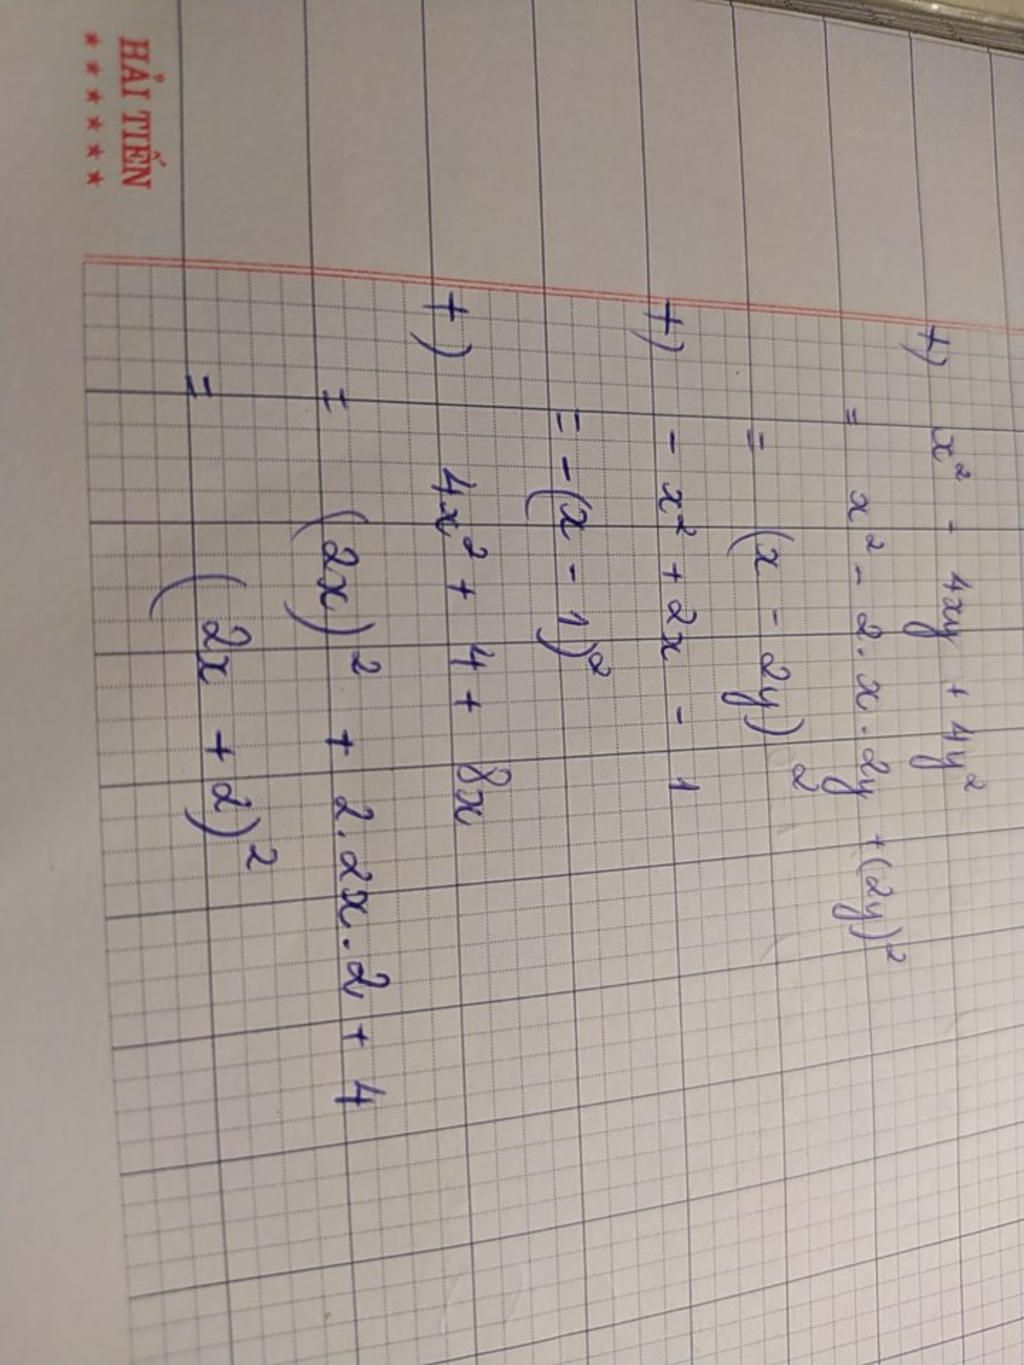 HẢI TIẾN
+) x² - 4xy + 4y²
= x² - 2.x.2y + (2y)²
= (x - 2y)²
+) - x² + 2x - 1
= -(x - 1)²
+) 4x² + 4 + 8x
= (2x)² + 2.2x.2 + 4
= (2x + 2)²